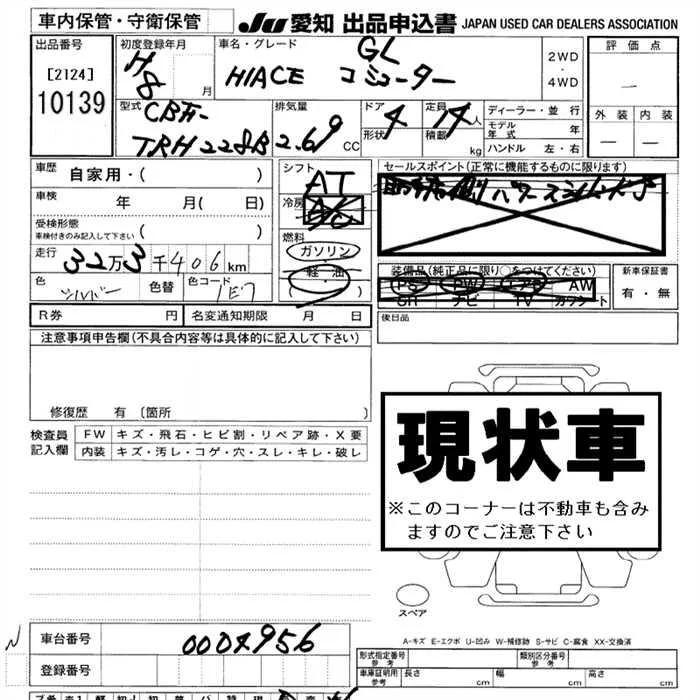 車内保管・守衛保管 JU 愛知 出品申込書 JAPAN USED CAR DEALERS ASSOCIATION
出品番号 初度登録年月 車名・グレード 評価点
[2124] H8 月 HIACE コミューター GL 2WD・4WD
10139
型式 CBF-TRH228B 排気量 2.69 CC ドア 4 形状 定員 14人 積載 kg
ディーラー・並行 モデル年式 年 ハンドル 左・右
外装 内装
車歴 自家用・( )
シフト AT
車検 年 月( 日)
冷房
受検形態 車検付きのみ記入して下さい ( )
燃料 ガソリン・軽油
走行 32万3千406km
色 シルバー 色替 色コード 1E7
セールスポイント(正常に機能するものに限ります)
装備品(純正品に限り○をつけてください)
PS PW エアB AW
SR ナビ TV カワシート
新車保証書
有・無
R券 円 名変通知期限 月 日
後日品
注意事項申告欄(不具合内容等は具体的に記入して下さい)
修復歴 有〔箇所 〕
検査員記入欄 FW キズ・飛石・ヒビ割・リペア跡・X要
内装 キズ・汚レ・コゲ・穴・スレ・キレ・破レ
現状車
※このコーナーは不動車も含み
ますのでご注意下さい
スペア
A-キズ E-エクボ U-凹み W-補修跡 S-サビ C-腐食 XX-交換済
車台番号 0007956
登録番号
形式指定番号 参考 類別区分番号 参考
車庫証明用 参考 長さ cm 幅 cm 高さ cm